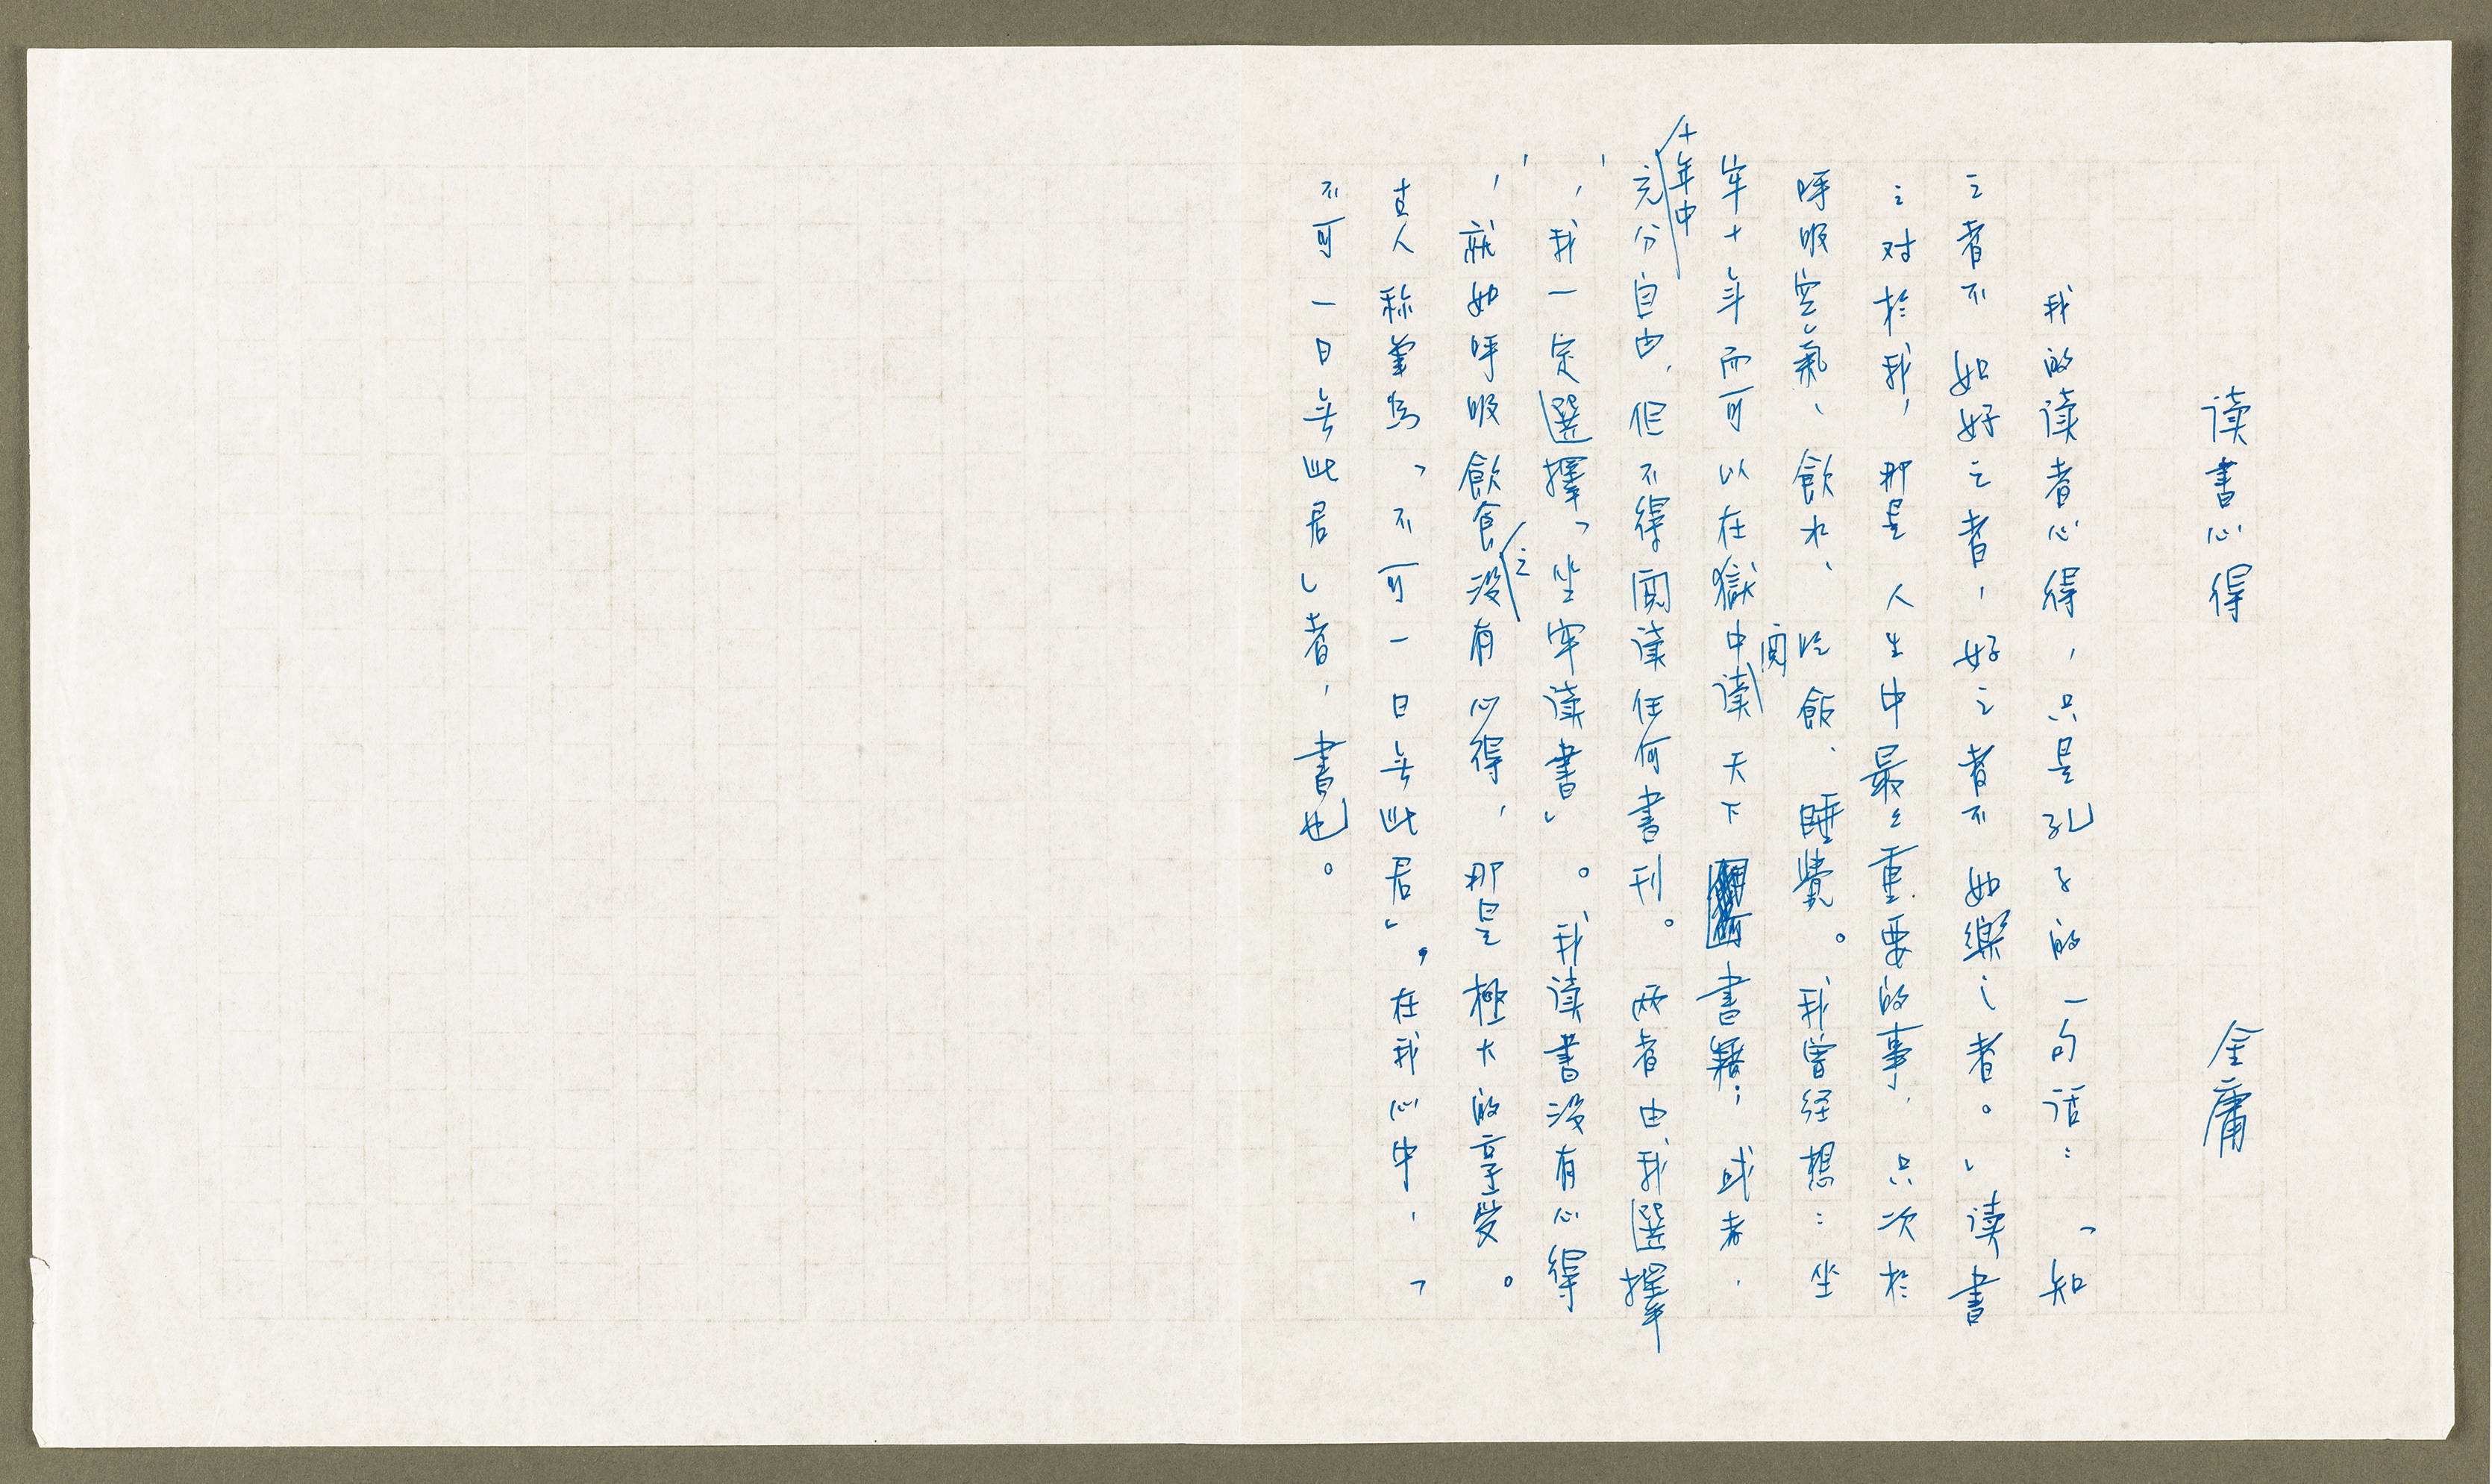 读書心得　金庸
我的读者心得，只是孔子的一句話：「知
之者不如好之者，好之者不如樂之者。」读書
之对於我，那是人生中最々重要的事，只次於
呼吸空氣、飲水、吃飯、睡覺。我曾经想：坐
牢十年而可以在獄中閱读天下書籍；或者，
十年中充分自由，但不得閱读任何書刊。两者由我選擇
，我一定選擇「坐牢读書」。我读書没有心得
，就如呼吸飲食之没有心得，那是極大的享受。
古人称筆为「不可一日無此君」，在我心中，「
不可一日無此君」者，書也。